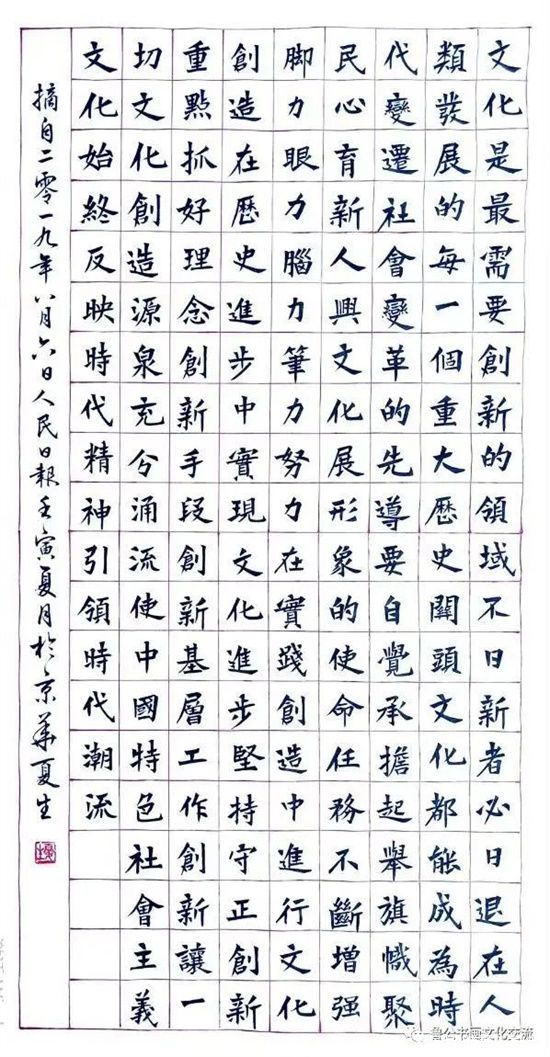 文化是最需要創新的領域不日新者必日退在人
類發展的每一個重大歷史關頭文化都能成為時
代變遷社會變革的先導要自覺承擔起舉旗幟聚
民心育新人興文化展形象的使命任務不斷增强
脚力眼力腦力筆力努力在實踐創造中進行文化
創造在歷史進步中實現文化進步堅持守正創新
重點抓好理念創新手段創新基層工作創新讓一
切文化創造源泉充分涌流使中國特色社會主義
文化始終反映時代精神引領時代潮流
摘自二零一九年八月六日人民日報壬寅夏月於京華夏生
鲁公书画文化交流